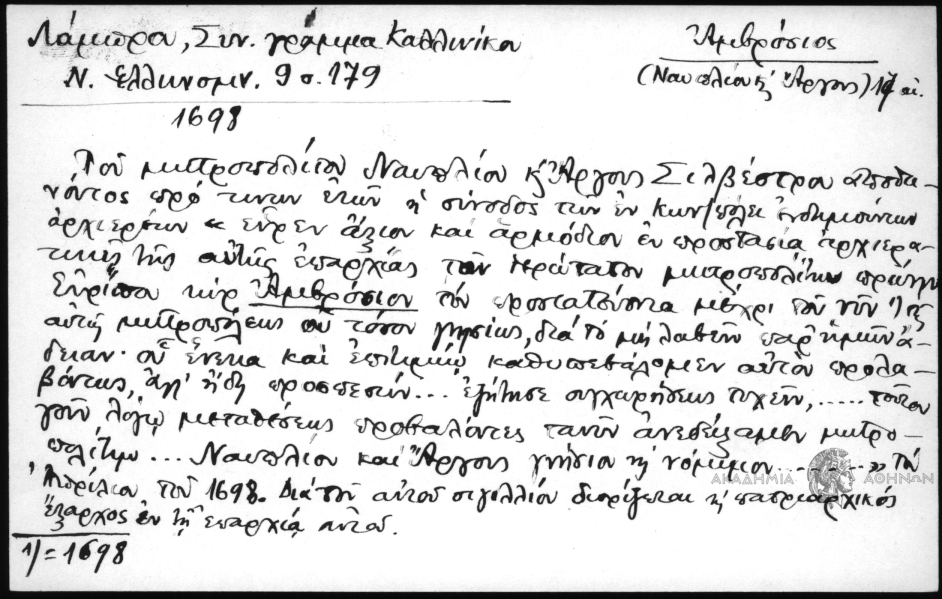 Λάμπρου, Συν. γράμμα Καλλινίκου
Ν. Ἑλληνομν. 9 σ. 179
1698
Ἀμβρόσιος
(Ναυπλίου κ' Ἄργους) 17 αἰ.
Τοῦ μητροπολίτου Ναυπλίου κ' Ἄργους Σιλβέστρου ἀποθα-
νόντος πρό τινων ἐτῶν ἡ σύνοδος τῶν ἐν Κων/πόλει ἐνδημούντων
ἀρχιερέων « εὗρεν ἄξιον καὶ ἁρμόδιον ἐν προστασίᾳ ἀρχιερα-
τικῆς τῆς αὐτῆς ἐπαρχίας τὸν ἱερώτατον μητροπολίτην πρώην
Εὐρίπου κὺρ Ἀμβρόσιον τὸν προστατεύοντα μέχρι τοῦ νῦν τῆς
αὐτῆς μητροπόλεως οὐ τόσον γνησίως, διὰ τὸ μὴ λαβεῖν παρ' ἡμῶν ἄ-
δειαν· οὗ ἕνεκα καὶ ἐπιτιμίῳ καθυπεβάλομεν αὐτὸν προλα-
βόντως, ἀλλ' ἤδη προσπεσών... ἐζήτησε συγχωρήσεως τυχεῖν, ..... τοῦτον
γοῦν λόγῳ μεταθέσεως προβαλόντες τανῦν ἀνεδείξαμεν μητρο-
πολίτην ... Ναυπλίου καὶ Ἄργους γνήσιον κ' νόμιμον ........ » τὸν
Ἀπρίλιον τοῦ 1698. Διὰ τοῦ αὐτοῦ σιγιλλίου διορίζεται κ' πατριαρχικός
ἔξαρχος ἐν τῇ ἐπαρχίᾳ αὐτοῦ.
1) = 1698
ΑΚΑΔΗΜΙΑ ΑΘΗΝΩΝ